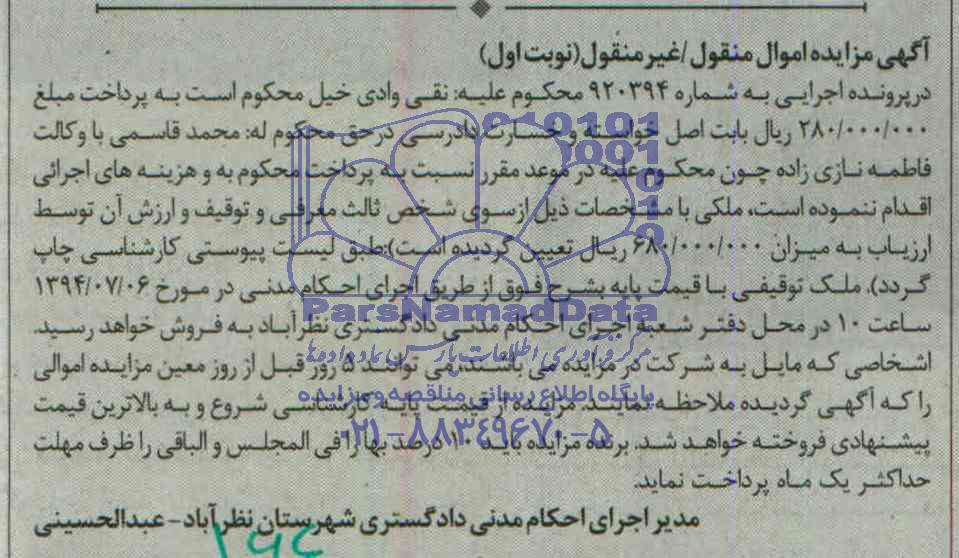 آگهی مزایده اموال منقول/غیر منقول(نوبت اول)
درپرونده اجرایی به شماره ۹۲۰۳۹۴ محکوم علیه: نقی وادی خیل محکوم است به پرداخت مبلغ
۲۸۰/۰۰۰/۰۰۰ ریال بابت اصل خواسته و خسارت دادرسی درحق محکوم له: محمد قاسمی با وکالت
فاطمه نازی زاده چون محکوم علیه در موعد مقرر نسبت به پرداخت محکوم به و هزینه های اجرائی
اقدام ننموده است، ملکی با مشخصات ذیل ازسوی شخص ثالث معرفی و توقیف و ارزش آن توسط
ارزیاب به میزان ۶۸۰/۰۰۰/۰۰۰ ریال تعیین گردیده است):طبق لیست پیوستی کارشناسی چاپ
گردد). ملک توقیفی با قیمت پایه بشرح فوق از طریق اجرای احکام مدنی در مورخ ۱۳۹۴/۰۷/۰۶
ساعت ۱۰ در محل دفتر شعبه اجرای احکام مدنی دادگستری نظرآباد به فروش خواهد رسید.
اشخاصی که مایل به شرکت در مزایده می باشند، می توانند ۵ روز قبل از روز معین مزایده اموالی
را که آگهی گردیده ملاحظه نمایند. مزایده از قیمت پایه کارشناسی شروع و به بالاترین قیمت
پیشنهادی فروخته خواهد شد. برنده مزایده باید ۱۰ درصد بها را فی المجلس و الباقی را ظرف مهلت
حداکثر یک ماه پرداخت نماید.
مدیر اجرای احکام مدنی دادگستری شهرستان نظرآباد-عبدالحسینی
ParsNamadData
مرکز فرآوری اطلاعات پارس نماد داده‌ها
پایگاه اطلاع رسانی مناقصه و مزایده
۰۲۱-۸۸۳۴۹۶۷۰-۵